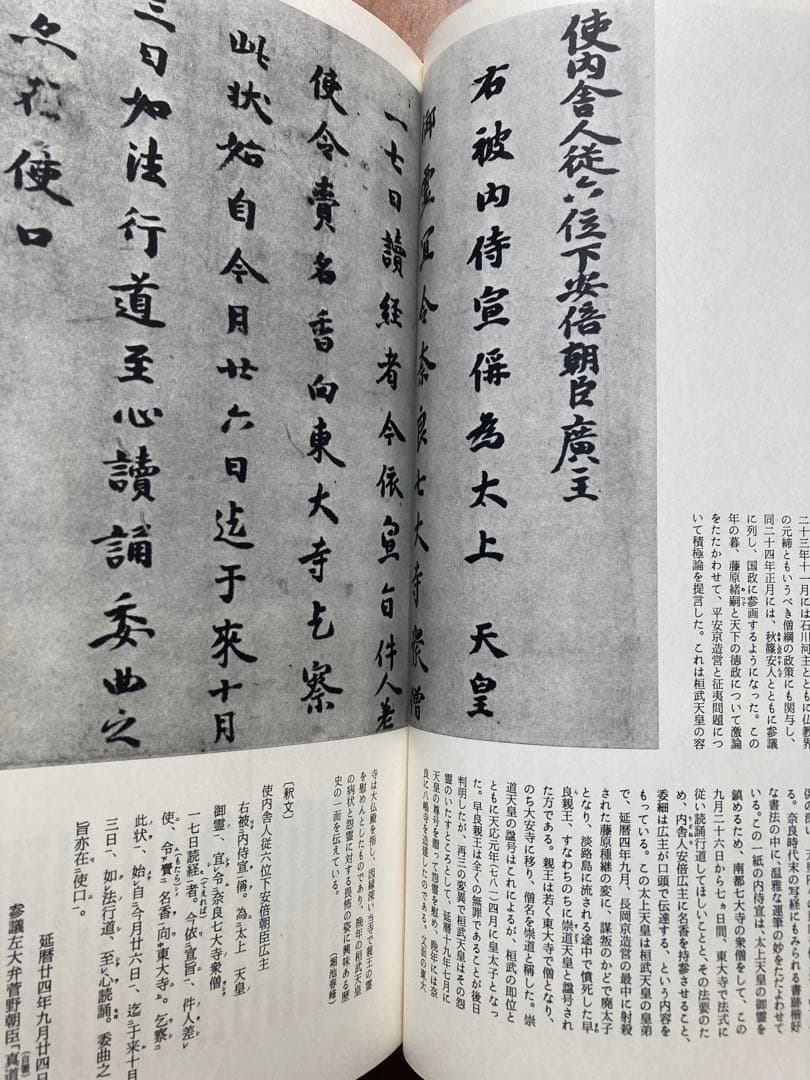 使内舎人従六位下安倍朝臣廣主
右被内侍宣偁為太上 天皇
御霊宜令奈良七大寺衆僧
一七日讀経者今依宣旨件人差
使令賫名香向東大寺乞察
此状始自今月廿六日迄于来十月
三日如法行道至心讀誦委曲之
旨亦在使口
二十三年十一月には石川河主とともに仏教界
の元締ともいうべき僧綱の政策にも関与し、
同二十四年正月には、秋篠安人とともに参議
に列し、国政に参画するようになった。この
年の暮、藤原緒嗣と天下の徳政について激論
をたたかわせて、平安京造営と征夷問題につ
いて積極論を提言した。これは桓武天皇の容
る。奈良時代末の写経にもみられる書蹟楷好
な書法の中に、温雅な運筆の妙をただよわせて
いる。この一紙の内侍宣は、太上天皇の御霊を
鎮めるため、南都七大寺の衆僧をして、この
九月二十六日から七ヵ日間、東大寺で法式に
従い読誦行道してほしいことと、その法要のた
め、内舎人安倍広主に名香を持参させること、
委細は広主が口頭で伝達する、という内容を
もっている。この太上天皇は桓武天皇の皇弟
で、延暦四年九月、長岡京造営の最中に射殺
された藤原種継の変に、謀叛のかどで廃太子
となり、淡路島に流される途中で憤死した早
良親王、すなわちのちに崇道天皇と諡号され
た方である。親王は若く東大寺で僧となり、
のち大安寺に移り、僧名を崇道と称した。崇
道天皇の諡号はこれによるが、桓武の即位と
ともに天応元年(七八一)四月に皇太子となっ
た。早良親王は全くの無罪であることが後日
判明したが、再三の変異で桓武天皇はその怨
霊のいたすところとして、延暦十九年七月に
天皇の尊号を贈って怨霊を慰め、晩年には奈
良に八嶋寺を造建したのである。文面の東大
寺は大仏殿を指し、因縁深い当寺で親王の霊
を慰めんとしたものであり、晩年の桓武天皇
の病状と怨霊に対する畏怖の姿に興味ある歴
史の一面を伝えている。 (堀池春峰)
〔釈文〕
使内舎人従六位下安倍朝臣広主
右被二内侍宣一偁。為二太上 天皇
御霊一、宜レ令二奈良七大寺衆僧
一七日読経一者。今依二宣旨一、件人差レ
使、令レ賫二名香一、向二東大寺一。乞察二
此状一、始レ自二今月廿六日一、迄二于来十月
三日一、如レ法行道、至レ心読誦。委曲之
旨亦在二使口一。
延暦廿四年九月廿四日
参議左大弁菅野朝臣「真道